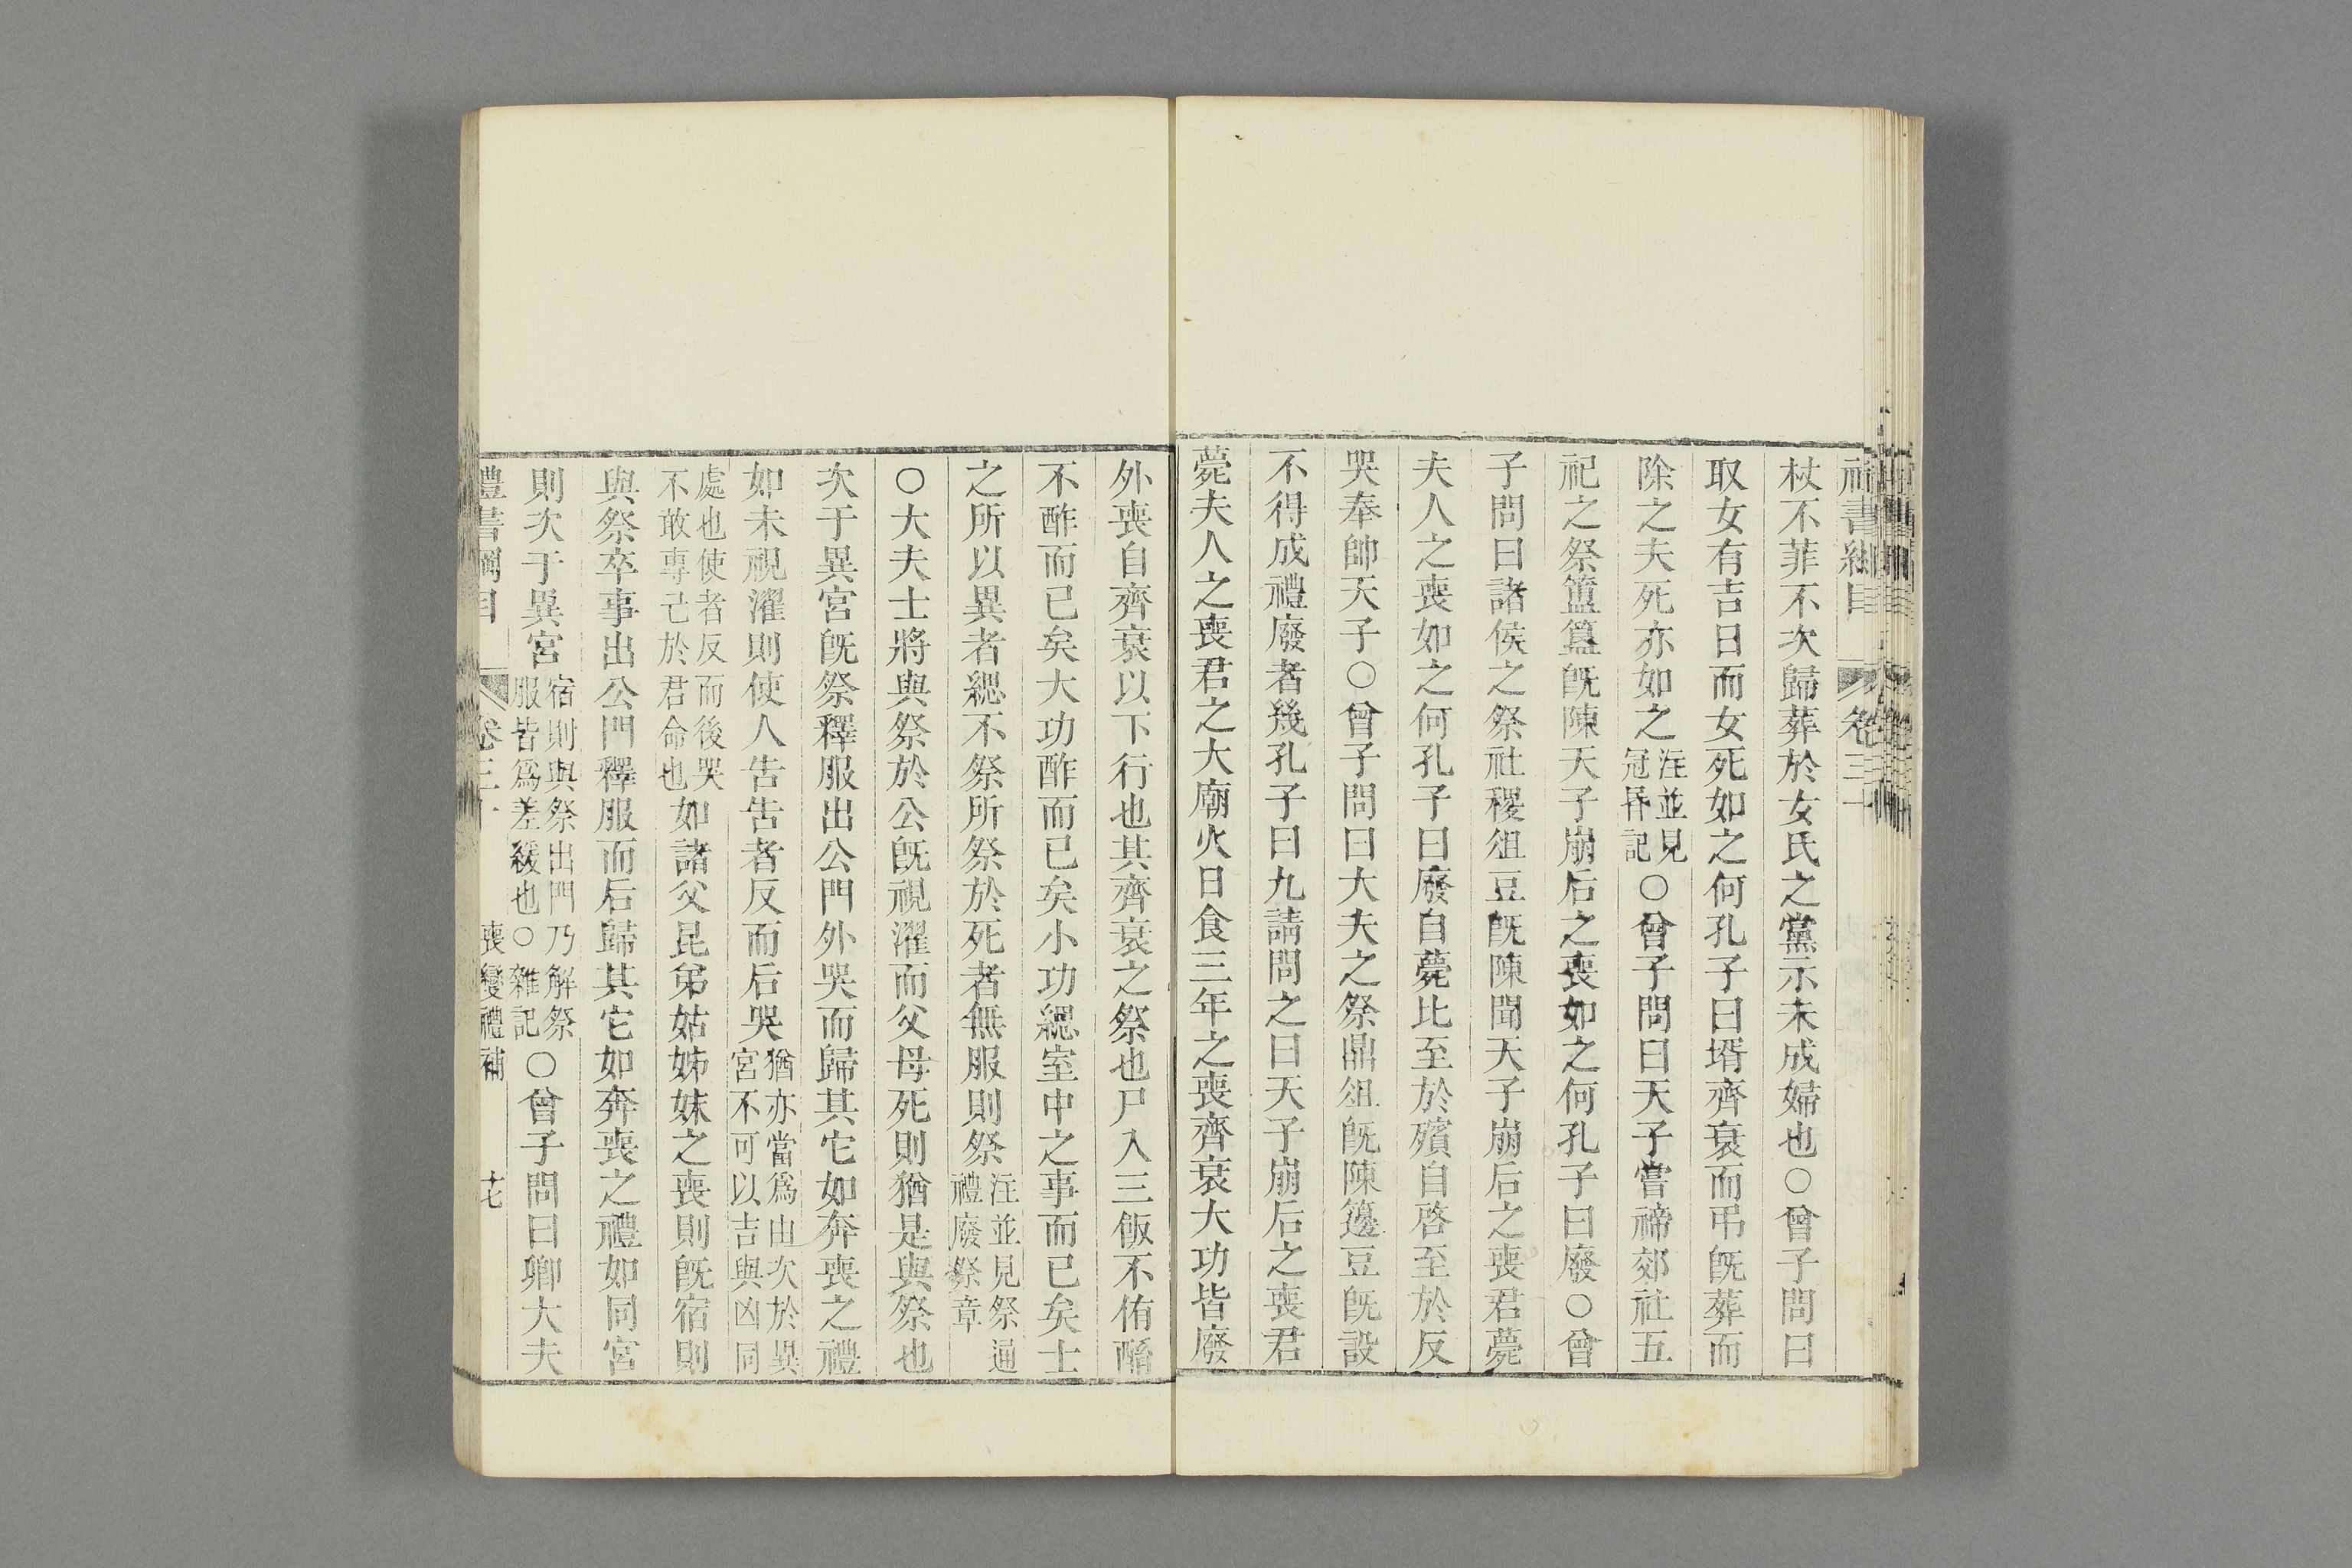 禮書綱目 卷三十
杖不菲不次歸葬於女氏之黨示未成婦也○曾子問曰
取女有吉日而女死如之何孔子曰壻齊衰而弔既葬而
除之夫死亦如之注並見冠昬記○曾子問曰天子嘗禘郊社五
祀之祭簠簋既陳天子崩后之喪如之何孔子曰廢○曾
子問曰諸侯之祭社稷俎豆既陳聞天子崩后之喪君薨
夫人之喪如之何孔子曰廢自薨比至於殯自啓至於反
哭奉帥天子○曾子問曰大夫之祭鼎俎既陳籩豆既設
不得成禮廢者幾孔子曰九請問之曰天子崩后之喪君
薨夫人之喪君之大廟火日食三年之喪齊衰大功皆廢
外喪自齊衰以下行也其齊衰之祭也尸入三飯不侑酳
不酢而已矣大功酢而已矣小功緦室中之事而已矣士
之所以異者緦不祭所祭於死者無服則祭注並見祭通禮廢祭章
○大夫士將與祭於公既視濯而父母死則猶是與祭也
次于異宮既祭釋服出公門外哭而歸其它如奔喪之禮
如未視濯則使人告告者反而后哭猶亦當爲由次於異宮不可以吉與凶同
處也使者反而後哭不敢專己於君命也如諸父昆弟姑姊妹之喪則既宿則
與祭卒事出公門釋服而后歸其它如奔喪之禮如同宮
則次于異宮宿則與祭出門乃解祭服皆爲差緩也○雜記○曾子問曰卿大夫
禮書綱目 卷三十 喪變禮補 十七